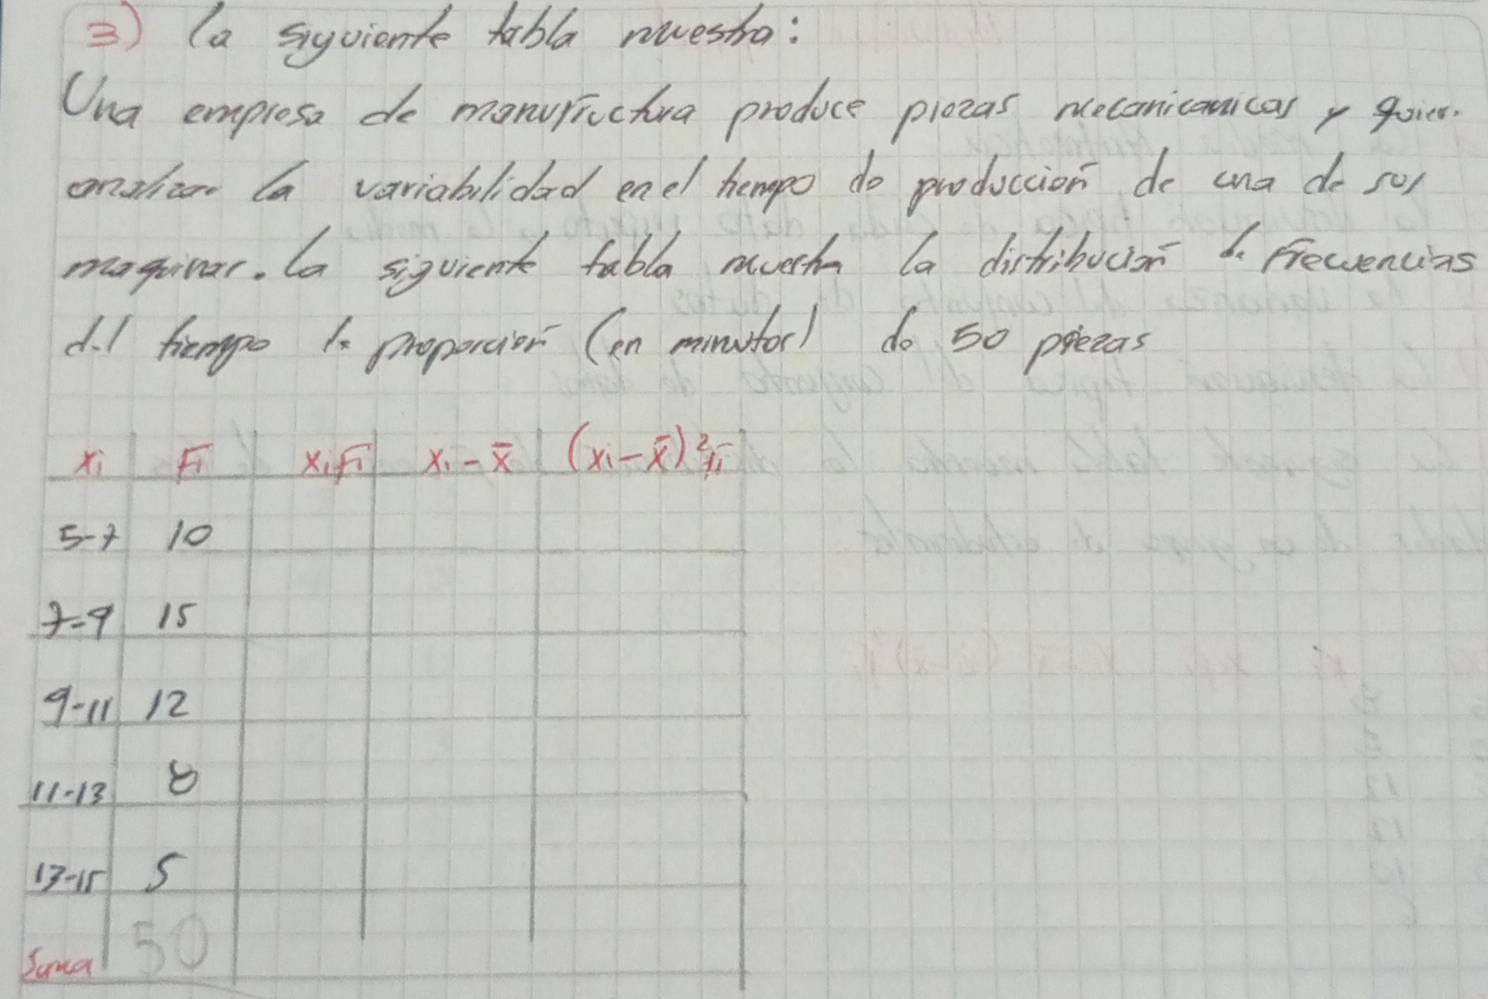 3) La siguiente tabla muestra:
Una empresa de manufructura produce piezas mecanicanicas y quier.
analizar la variabilidad en el tiempo de producción de una de sus
maquinas. La siguiente tabla muestra la distribución de frecuencias
del tiempo de proporción (en minutos) de 50 piezas
xi fi xifi xi-x̄ (xi-x̄)²fi
5-7 10
7-9 15
9-11 12
11-13 8
13-15 5
Suma 50